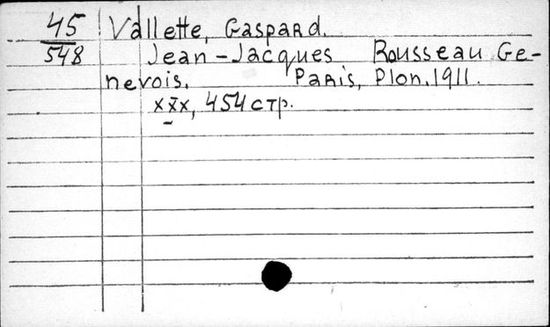 45 Vallette, Gaspard.
548 Jean-Jacques Rousseau Ge-
nevois. Paris, Plon. 1911.
xxx, 454 стр.